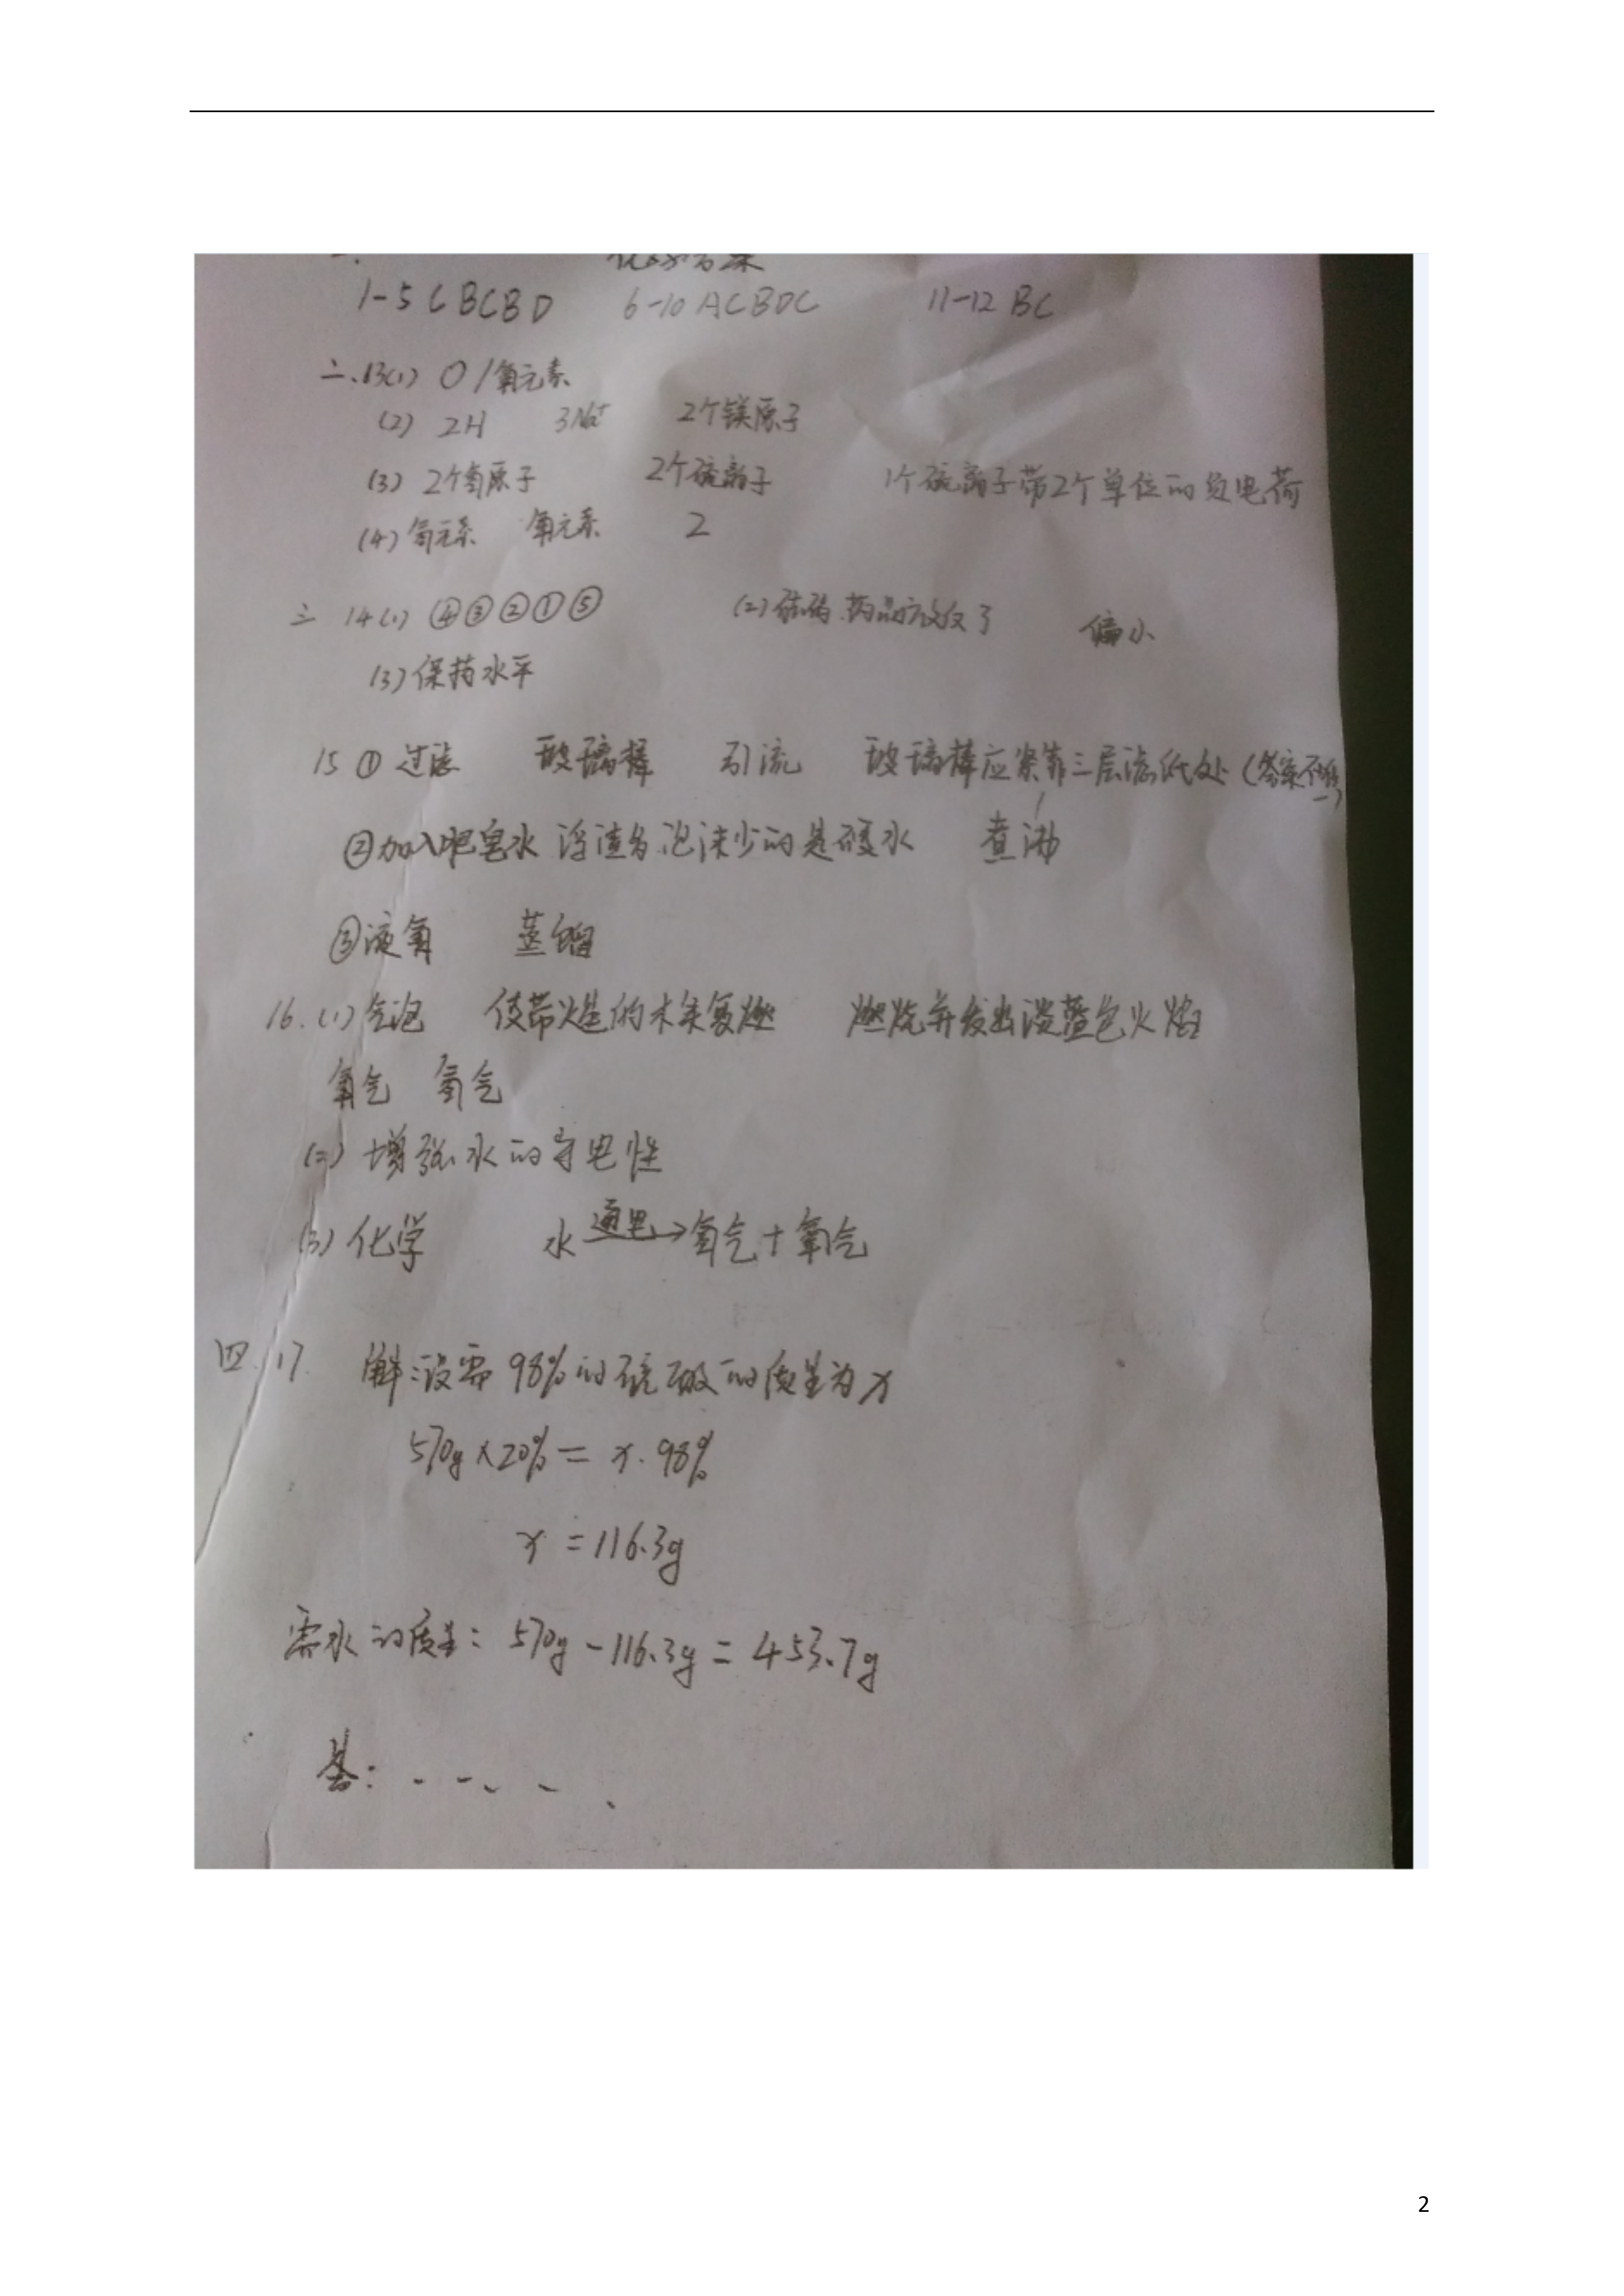 一.
化学答案
1-5 CBCBD 6-10 ACBDC 11-12 BC
二.13(1) O/氧元素
(2) 2H 3Na⁺ 2个镁原子
(3) 2个氢原子 2个硫离子 1个硫离子带2个单位的负电荷
(4) 氢元素 氧元素 2
三 14(1) ④③②①⑤ (2) 砝码.药品放反了 偏小
(3) 保持水平
15 ① 过滤 玻璃棒 引流 玻璃棒应紧靠三层滤纸处 (答案不唯一)
②加入肥皂水 浮渣多.泡沫少的是硬水 煮沸
③液氧 蒸馏
16.(1) 气泡 使带火星的木条复燃 燃烧并发出淡蓝色火焰
氧气 氢气
(2) 增强水的导电性
(3) 化学 水 通电→ 氢气+氧气
四.17. 解:设需98%的硫酸的质量为x
570g×20%=x.98%
x=116.3g
需水的质量: 570g-116.3g=453.7g
答: .....
2